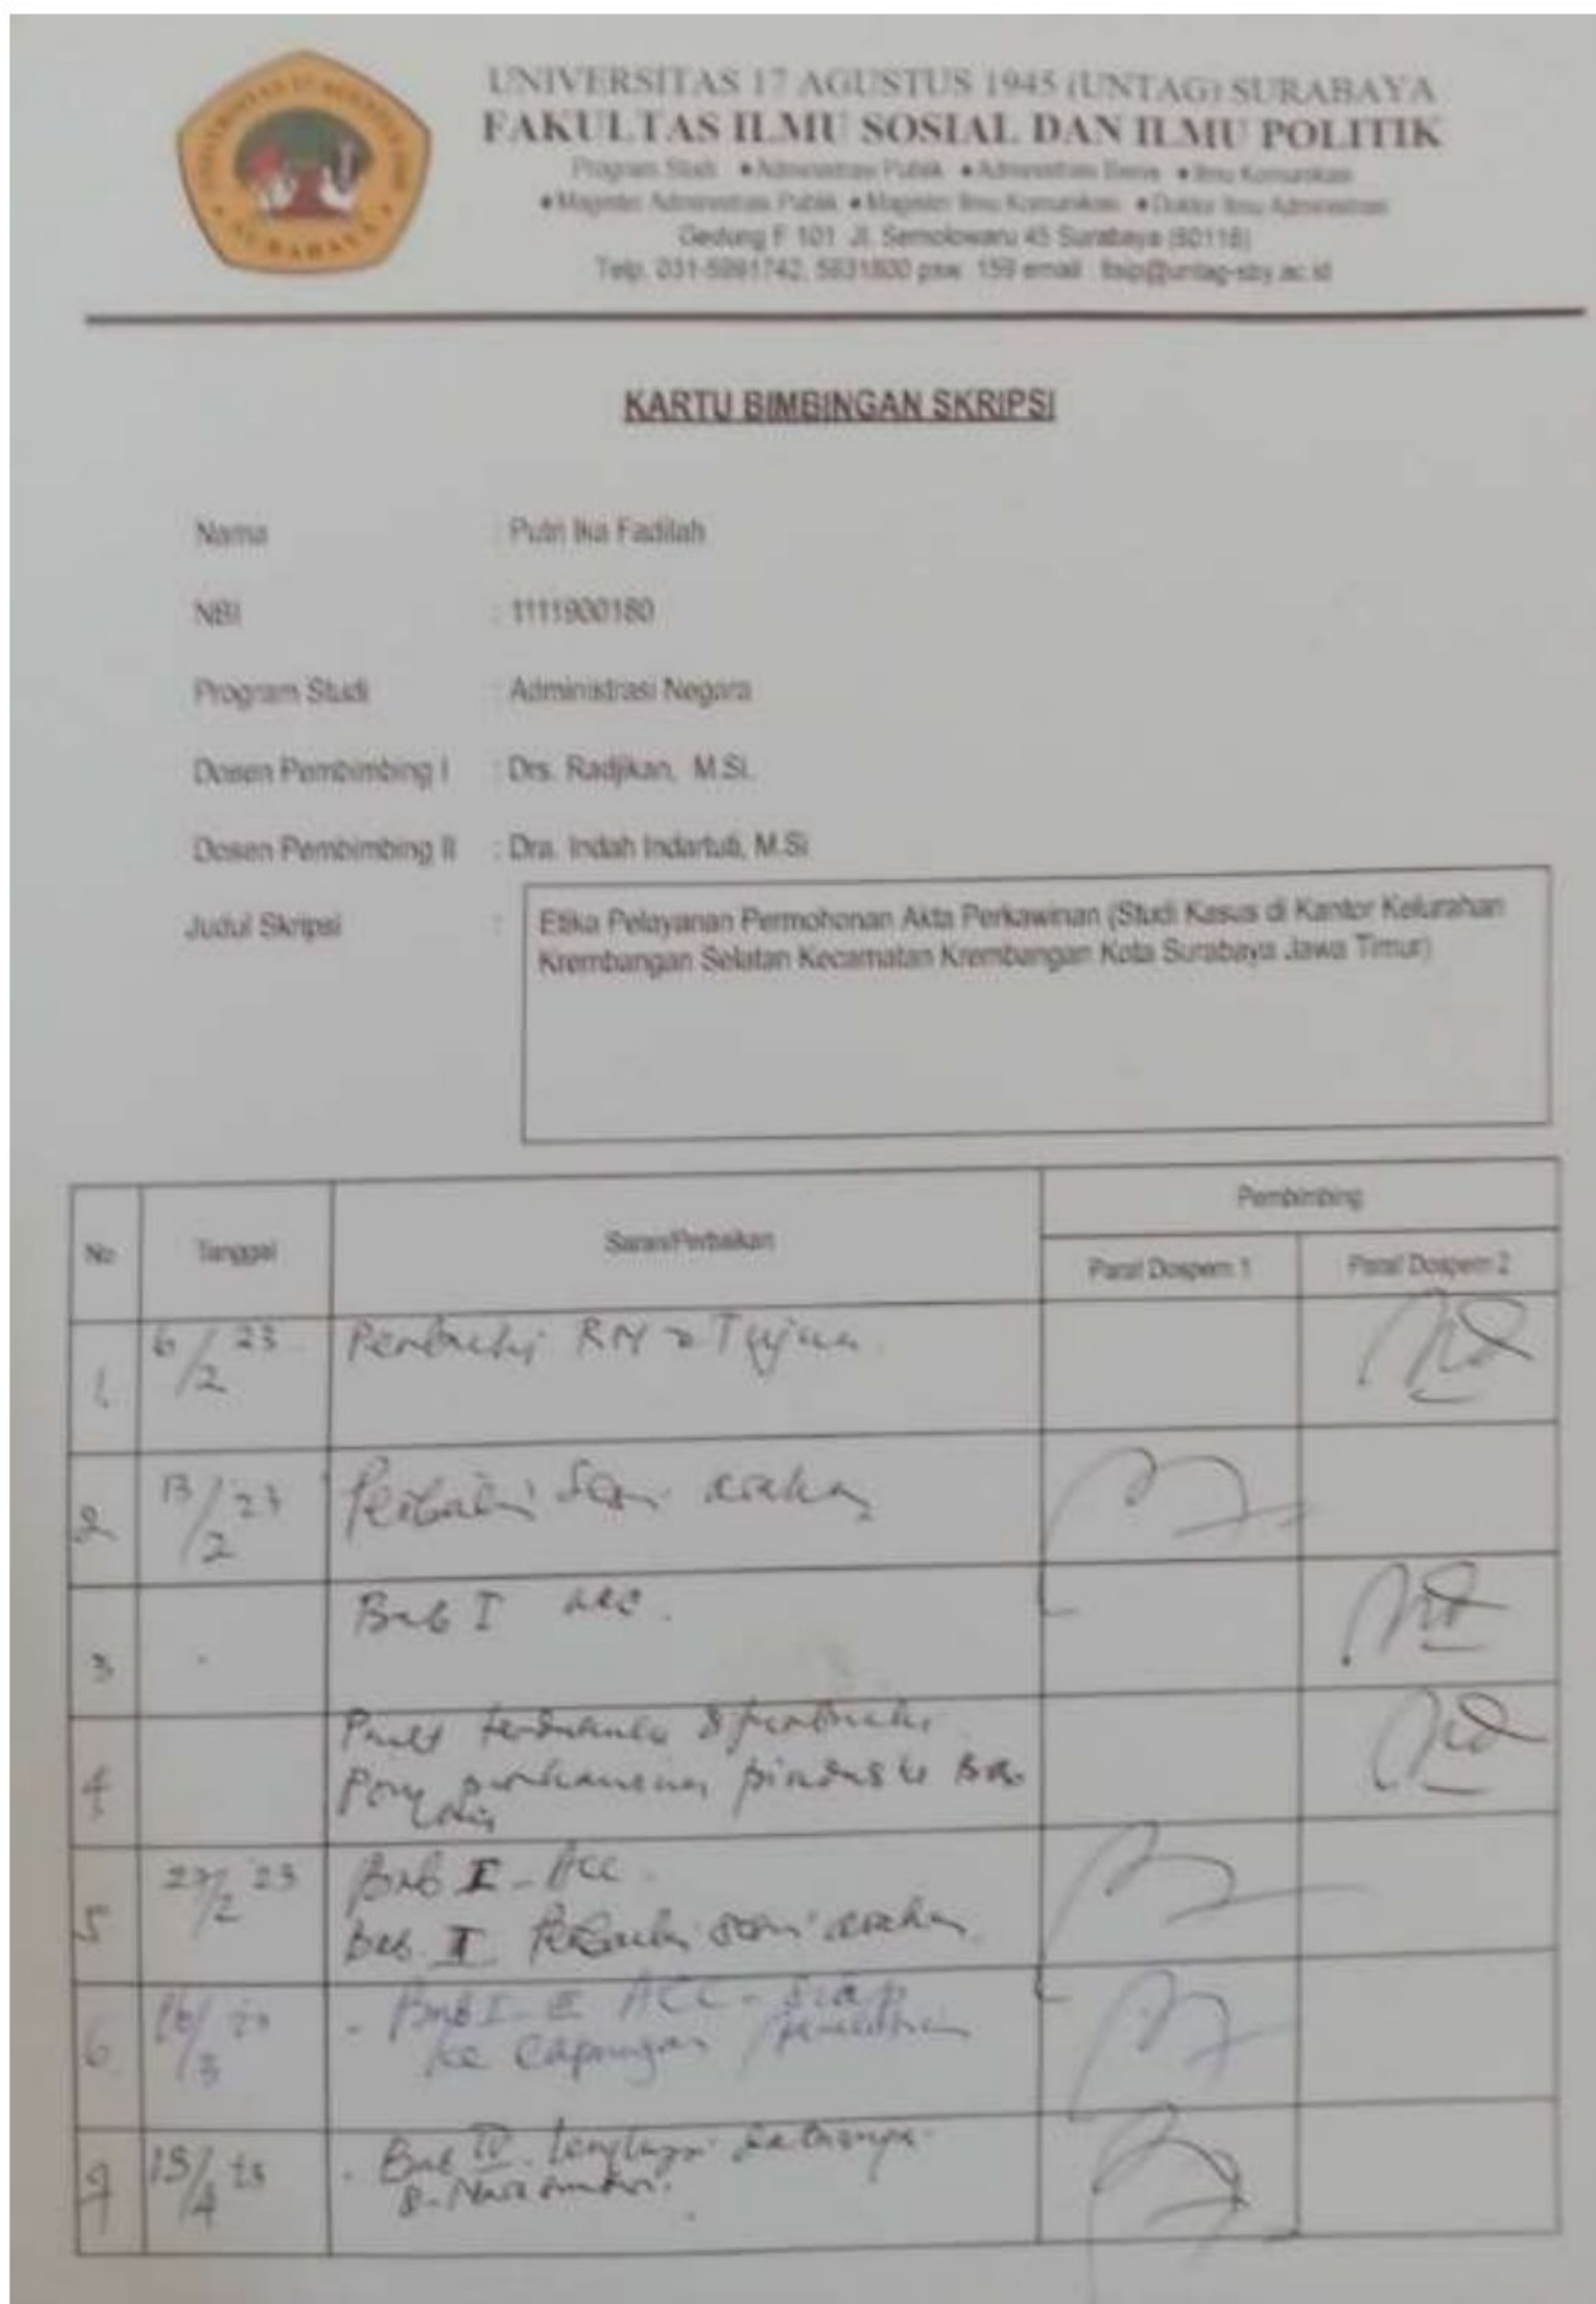 UNIVERSITAS 17 AGUSTUS 1945
SURABAYA
UNIVERSITAS 17 AGUSTUS 1945 (UNTAG) SURABAYA
FAKULTAS ILMU SOSIAL DAN ILMU POLITIK
Program Studi • Administrasi Publik • Administrasi Bisnis • Ilmu Komunikasi
• Magister Administrasi Publik • Magister Ilmu Komunikasi • Doktor Ilmu Administrasi
Gedung F 101 Jl. Semolowaru 45 Surabaya (60118)
Telp. 031-5991742, 5931800 psw. 159 email : fisip@untag-sby.ac.id
KARTU BIMBINGAN SKRIPSI
Nama : Putri Ika Fadilah
NBI : 1111900180
Program Studi : Administrasi Negara
Dosen Pembimbing I : Drs. Radjikan, M.Si.
Dosen Pembimbing II : Dra. Indah Indartuti, M.Si
Judul Skripsi : Etika Pelayanan Permohonan Akta Perkawinan (Studi Kasus di Kantor Kelurahan
Krembangan Selatan Kecamatan Krembangan Kota Surabaya Jawa Timur)
No Tanggal Saran/Perbaikan Pembimbing
Paraf Dospem 1 Paraf Dospem 2
1. 6/2 23 Perbaiki RM & Tujuan
2 13/2 23 Perbaiki Sesuai arahan
3 Bab I acc.
4 terdahulu diperbaiki
pindah ke Bab
5 27/2 23 Bab I - Acc.
Bab II Perbaiki sesuai arahan
6 16/3 23 - Bab I - III ACC - Siap
ke lapangan / penelitian
7 15/4 23 - Bab IV. lengkapi datanya